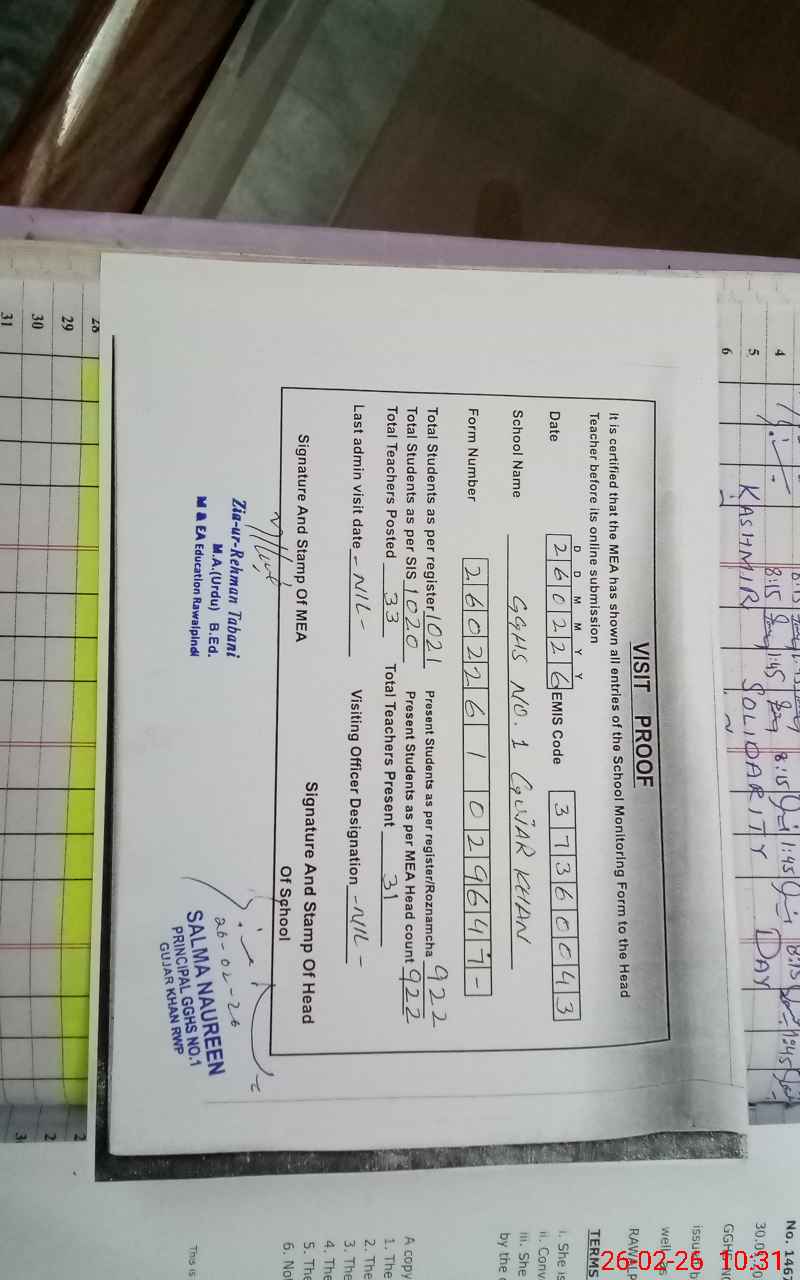 VISIT PROOF
It is certified that the MEA has shown all entries of the School Monitoring Form to the Head
Teacher before its online submission
D D M M Y Y
Date 260226 EMIS Code 37360043
School Name GGHS NO. 1 GUJAR KHAN
Form Number 260226 1 029647-
Total Students as per register 1021 Present Students as per register/Roznamcha 922
Total Students as per SIS 1020 Present Students as per MEA Head count 922
Total Teachers Posted 33 Total Teachers Present 31
Last admin visit date - NIL - Visiting Officer Designation - NIL -
Signature And Stamp Of MEA Signature And Stamp Of Head
Of School
Zia-ur-Rehman Tabani
M.A.(Urdu) B.Ed.
M & EA Education Rawalpindi
26-02-26
SALMA NAUREEN
PRINCIPAL GGHS NO.1
GUJAR KHAN RWP
4
5 KASHMIR SOLIDARITY DAY
6
8:15 1:45 8:15 1:45 8:15 1:45
28
29
30
31
No. 1467
30.0
GGHS
issu
well
RAWALP
TERMS
i. She is
ii. Conv
iii. She
by the
A copy
1. The
2. The
3. The
4. The
5. The
6. Not
This is
26-02-26 10:31